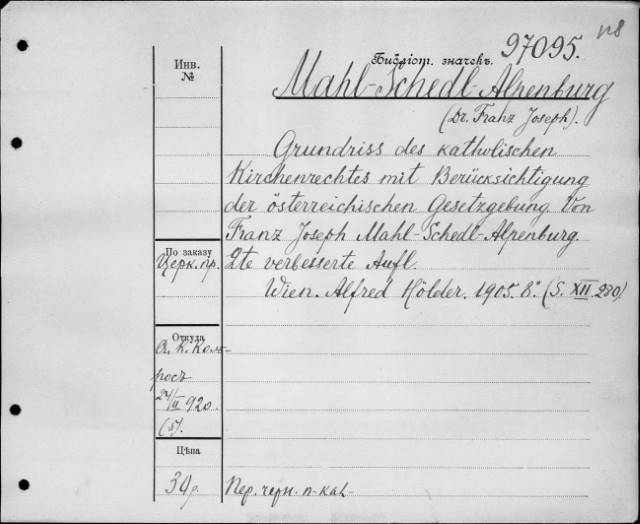 97095.
Инв. №
Библіот. значекъ.
Mahl-Schedl-Alpenburg
(Dr. Franz Joseph).
Grundriss des katholischen
Kirchenrechtes mit Berücksichtigung
der österreichischen Gesetzgebung Von
Franz Joseph Mahl-Schedl-Alpenburg.
2te verbesserte Aufl.
Wien. Alfred Hölder. 1905. 8° (S. XII 230)
По заказу
Церк. пр.
Откуда
24/II 920.
(5).
Цѣна
30 р.
Пер.